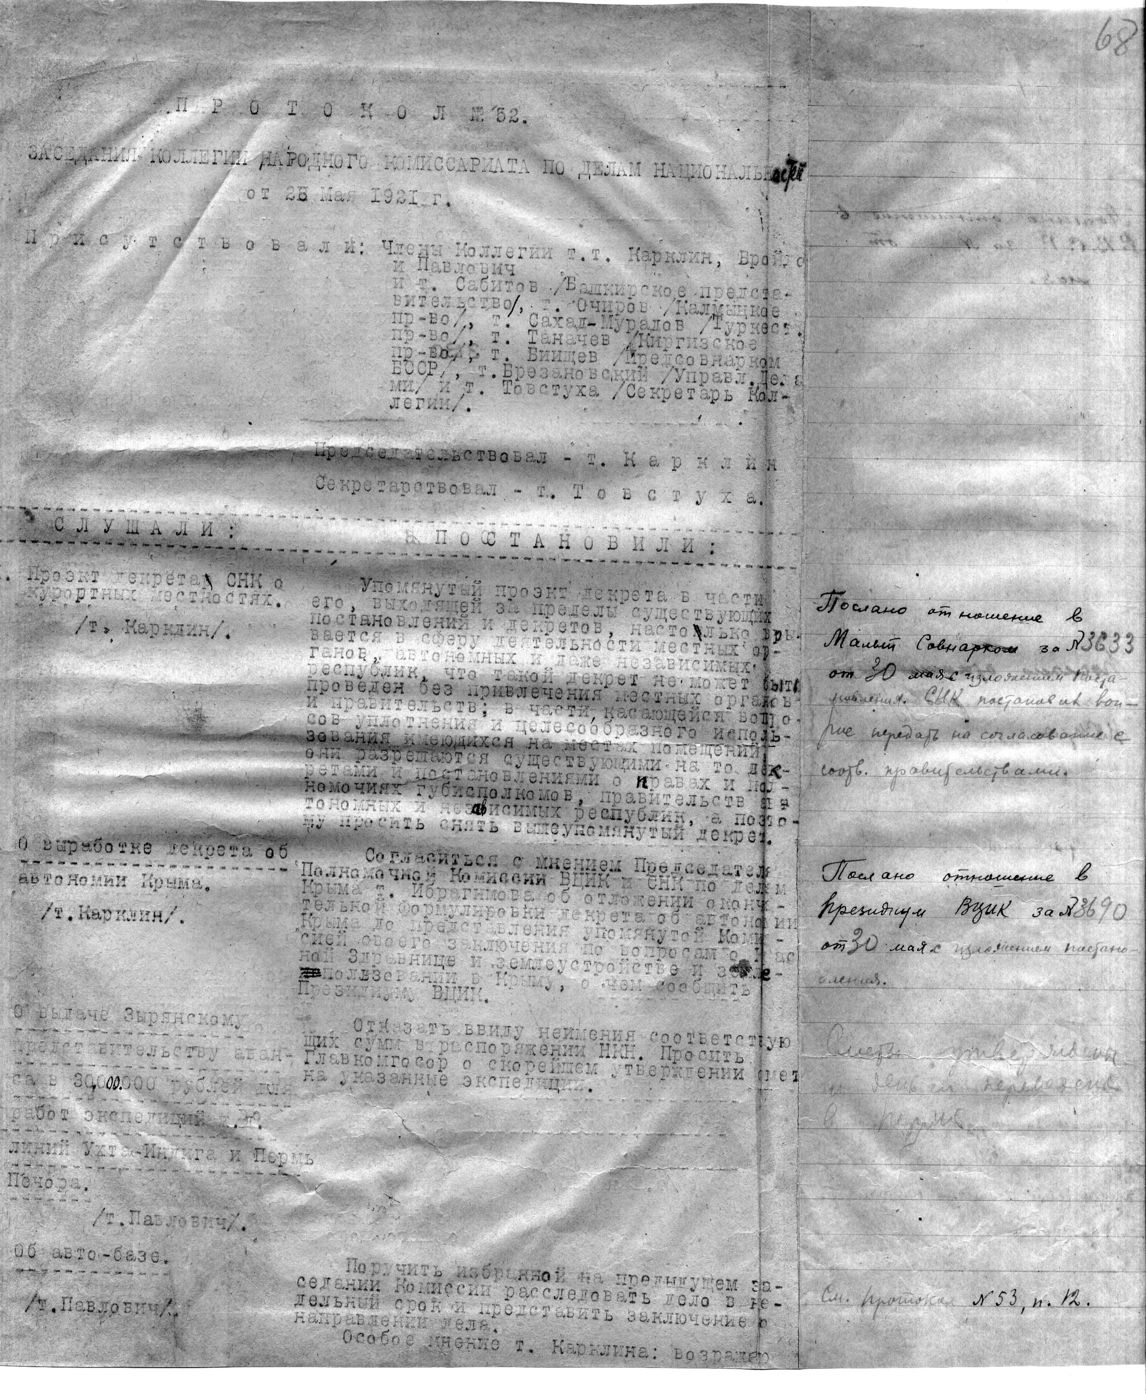 68
П Р О Т О К О Л № 52.
ЗАСЕДАНИЯ КОЛЛЕГИИ НАРОДНОГО КОМИССАРИАТА ПО ДЕЛАМ НАЦИОНАЛЬНОСТЕЙ
от 25 Мая 1921 г.
П р и с у т с т в о в а л и: Члены Коллегии т.т. Карклин, Бройдо
и Павлович
и т. Сабитов /Башкирское предста-
вительство/, т. Очиров /Калмыцкое
пр-во/, т. Сахад-Мурадов /Туркест.
пр-во/, т. Таначев /Киргизское
пр-во/, т. Биишев /Предсовнарком
БССР/, т. Брезановский /Управл.Дела
ми/ и т. Товстуха /Секретарь Кол-
легии/.
Председательствовал - т. К а р к л и н
Секретарствовал - т. Т о в с т у х а.
С Л У Ш А Л И :
П О С Т А Н О В И Л И :
Проэкт декрета СНК о
курортных местностях.
/т. Карклин/.
Упомянутый проэкт декрета в части
его, выходящей за пределы существующих
постановлений и декретов, настолько вры-
вается в сферу деятельности местных ор-
ганов, автономных и даже независимых
республик, что такой декрет не может быть
проведен без привлечения местных органов
и правительств; в части, касающейся вопро-
сов уплотнения и целесообразного исполь-
зования имеющихся на местах помещений -
они разрешаются существующими на то дек-
ретами и постановлениями о правах и пол-
номочиях Губисполкомов, правительств ав-
тономных и независимых республик, а поэто-
му просить снять вышеупомянутый декрет.
Послано отношение в
Малый Совнарком за №3633
от 30 мая с изложением поста-
новления. СНК постановил воп-
рос передать на согласование с
соотв. правительствами.
О выработке декрета об
автономии Крыма.
/т.Карклин/.
Согласиться с мнением Председателя
Полномочной Комиссии ВЦИК и СНК по делам
Крыма т. Ибрагимова об отложении оконча-
тельной формулировки декрета об автономии
Крыма до представления упомянутой Коми-
сией своего заключения по вопросам о Крас
ной Здравнице и землеустройстве и земле-
пользовании в Крыму, о чем сообщить
Президиуму ВЦИК.
Послано отношение в
Президиум ВЦИК за №3690
от 30 мая с изложением постано-
вления.
О выдаче Зырянскому
представительству аван-
са в 30,000.000 рублей для
работ экспедиций т.н.
линий Ухта-Индига и Пермь
Печора.
/т.Павлович/.
Отказать ввиду неимения соответствую
щих сумм в распоряжении НКН. Просить
Главкомгосор о скорейшем утверждении смет
на указанные экспедиции.
Сметы утверждены
и деньги переведены
в
Об авто-базе.
/т.Павлович/.
Поручить избранной на предыдущем за-
седании Комиссии расследовать дело в не-
дельный срок и представить заключение о
направлении дела.
Особое мнение т. Карклина: возражаю
См. протокол №53, п. 12.